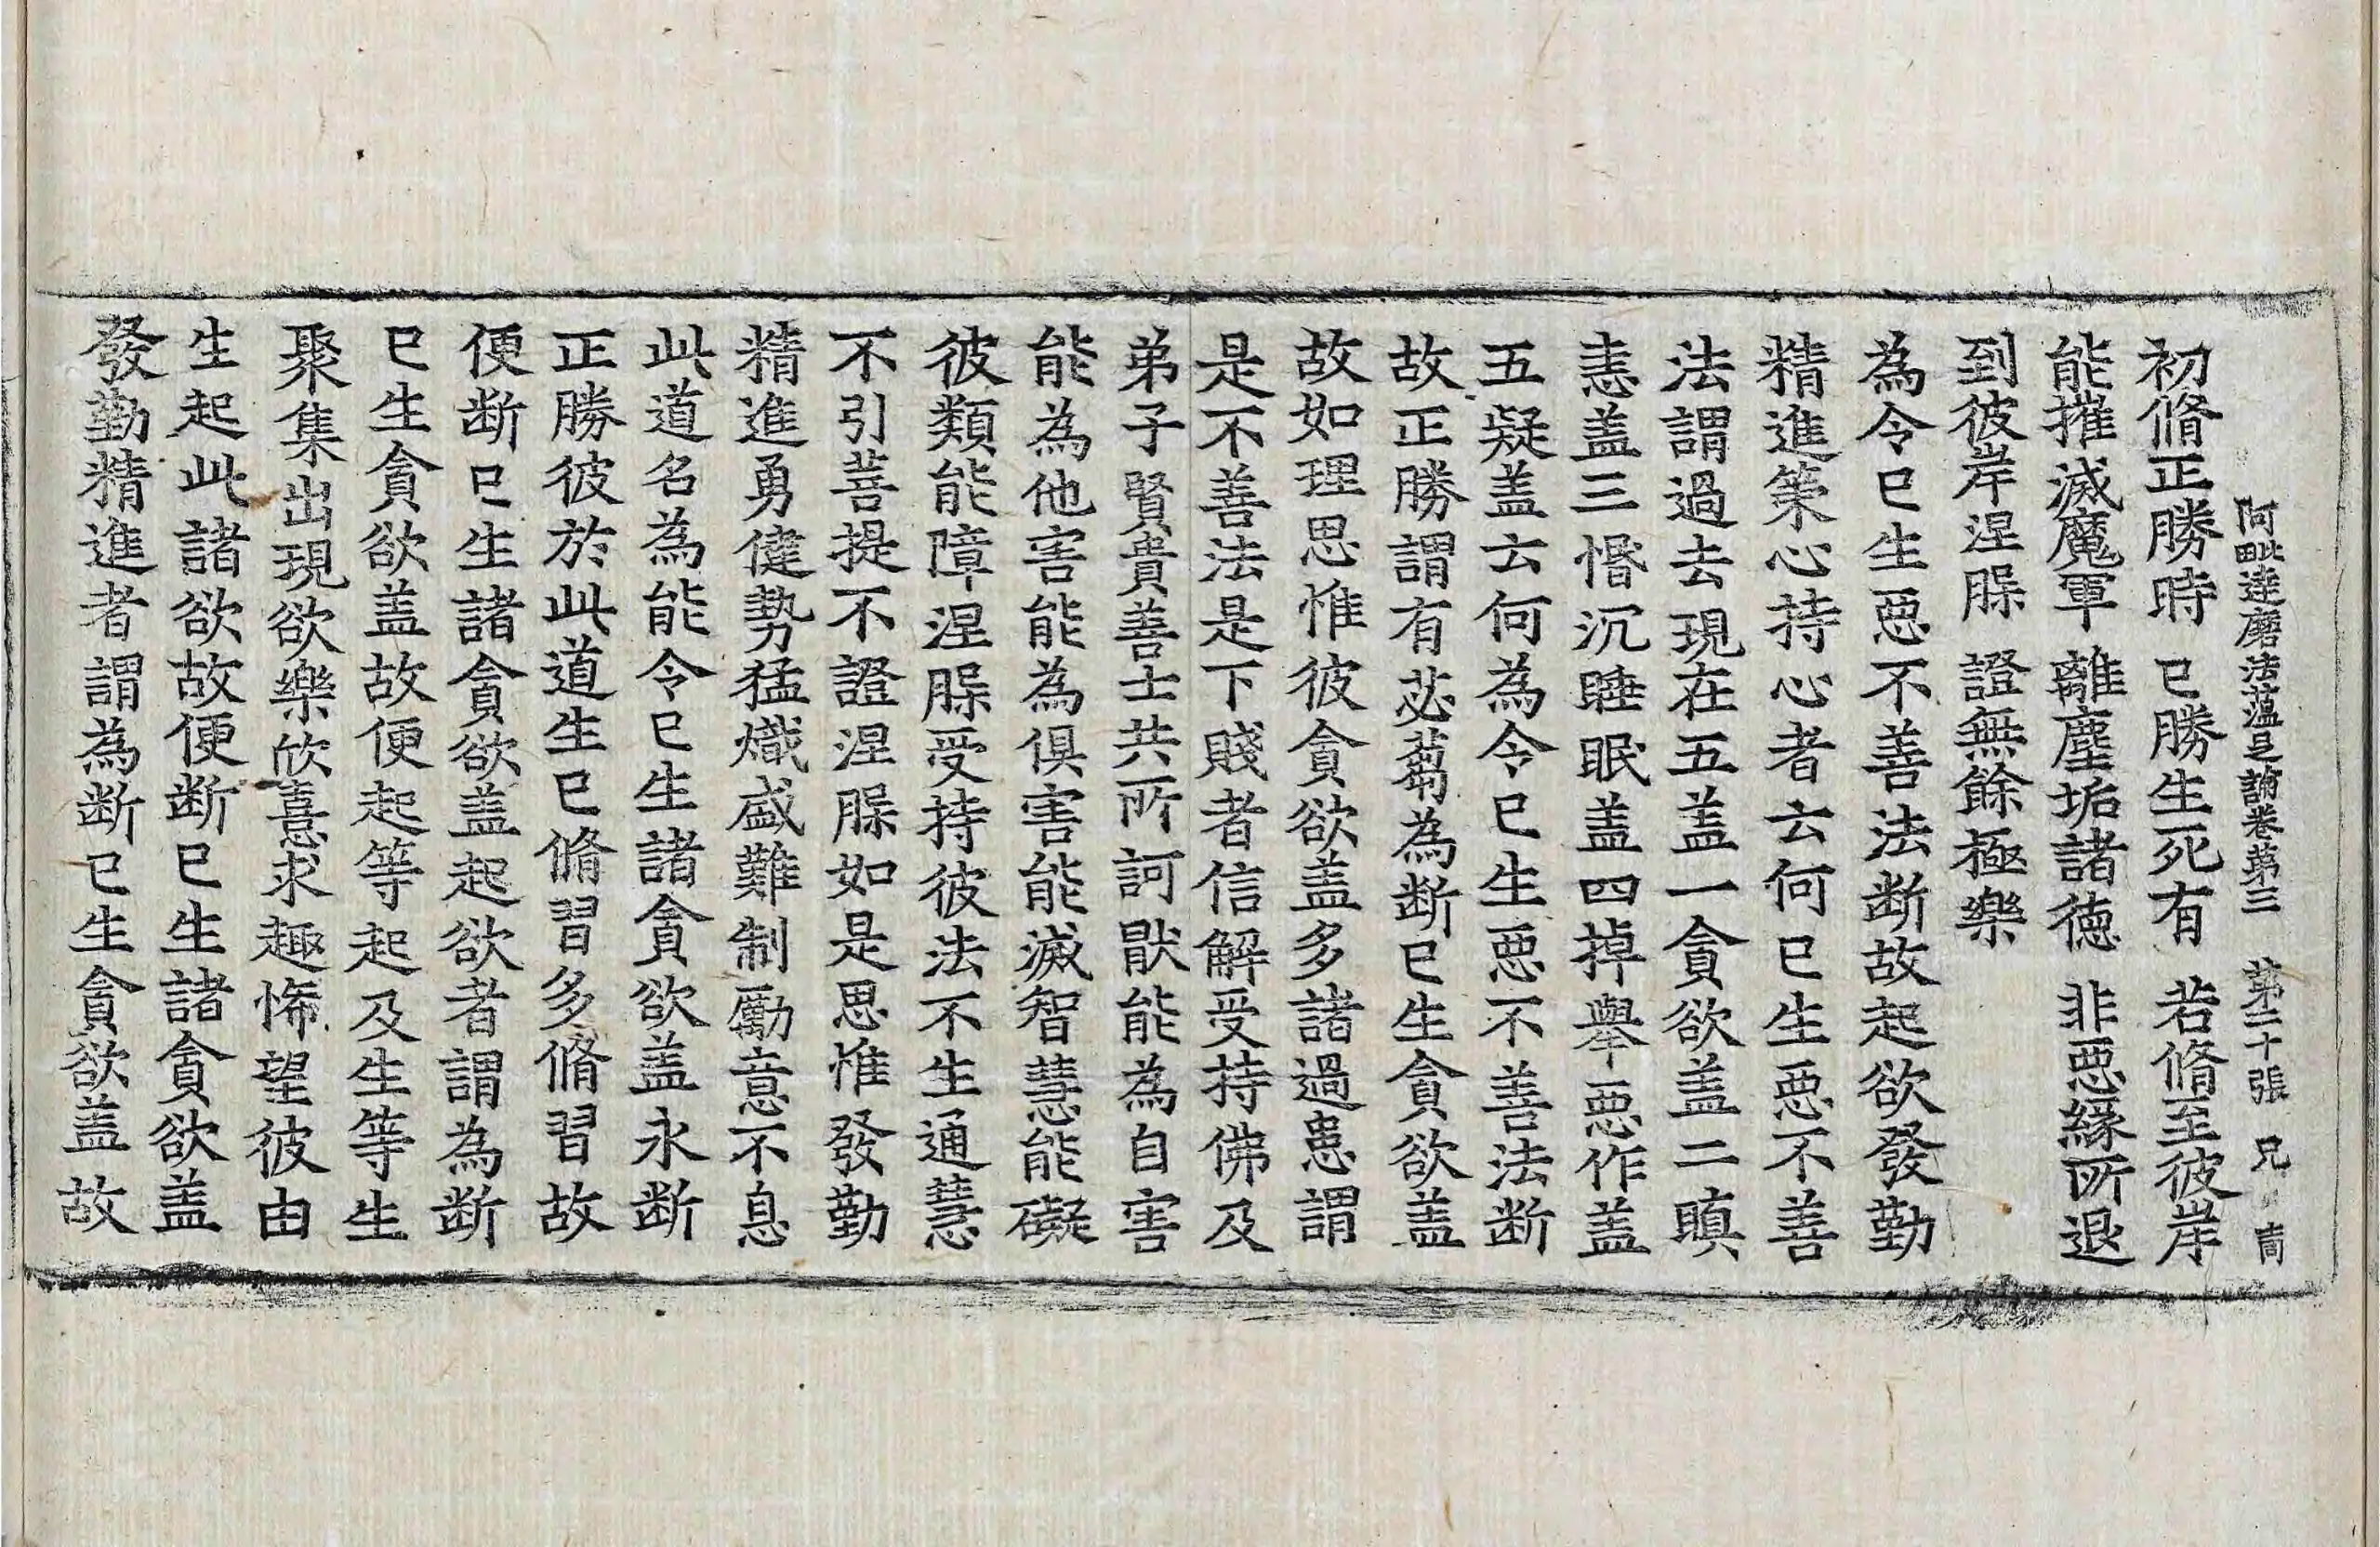 阿毗達磨法蕴足論卷第三　第二十張　兄
初脩正勝時　已勝生死有　若脩至彼岸
能摧滅魔軍　離塵垢諸德　非惡緣所退
到彼岸涅槃　證無餘極樂
為令已生惡不善法断故起欲發勤
精進策心持心者云何已生惡不善
法謂過去現在五盖一貪欲盖二瞋
恚盖三惛沉睡眠盖四掉舉惡作盖
五疑盖云何為令已生惡不善法断
故正勝謂有苾蒭為断已生貪欲盖
故如理思惟彼貪欲盖多諸過患謂
是不善法是下賤者信解受持佛及
弟子賢貴善士共所訶猒能為自害
能為他害能為俱害能滅智慧能礙
彼類能障涅槃受持彼法不生通慧
不引菩提不證涅槃如是思惟發勤
精進勇健勢猛熾盛難制勵意不息
此道名為能令已生諸貪欲盖永断
正勝彼於此道生已脩習多脩習故
便断已生諸貪欲盖起欲者謂為断
已生貪欲盖故便起等起及生等生
聚集出現欲樂欣憙求趣悕望彼由
生起此諸欲故便断已生諸貪欲盖
發勤精進者謂為断已生貪欲盖故